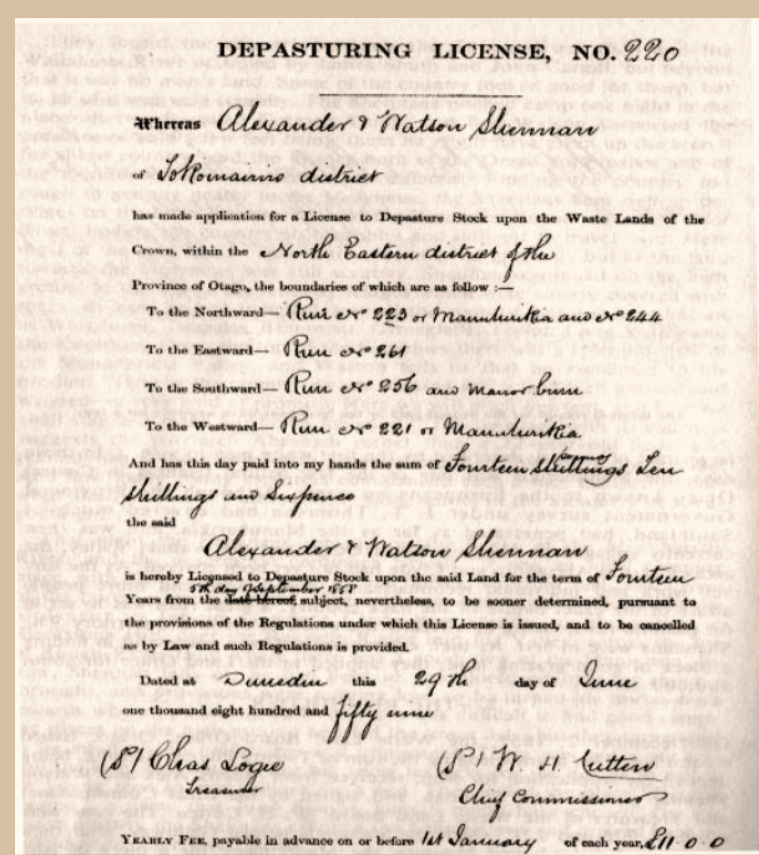 DEPASTURING LICENSE, NO. 220
Whereas Alexander & Watson Shennan
of Tokomairiro district
has made application for a License to Depasture Stock upon the Waste Lands of the
Crown, within the North Eastern district of the
Province of Otago, the boundaries of which are as follow :—
To the Northward— Run No 223 or Manuherikia and No 244
To the Eastward— Run No 261
To the Southward— Run No 256 and Manorburn
To the Westward— Run No 221 or Manuherikia
And has this day paid into my hands the sum of Fourteen shillings Ten
shillings and Sixpence
the said
Alexander & Watson Shennan
is hereby Licensed to Depasture Stock upon the said Land for the term of Fourteen
5th day of September 1858
Years from the date hereof, subject, nevertheless, to be sooner determined, pursuant to
the provisions of the Regulations under which this License is issued, and to be cancelled
as by Law and such Regulations is provided.
Dated at Dunedin this 29th day of June
one thousand eight hundred and fifty nine
(S) Chas Logie (S) W. H. Cutten
Treasurer Chief Commissioner
YEARLY FEE, payable in advance on or before 1st January of each year, £11 0 0